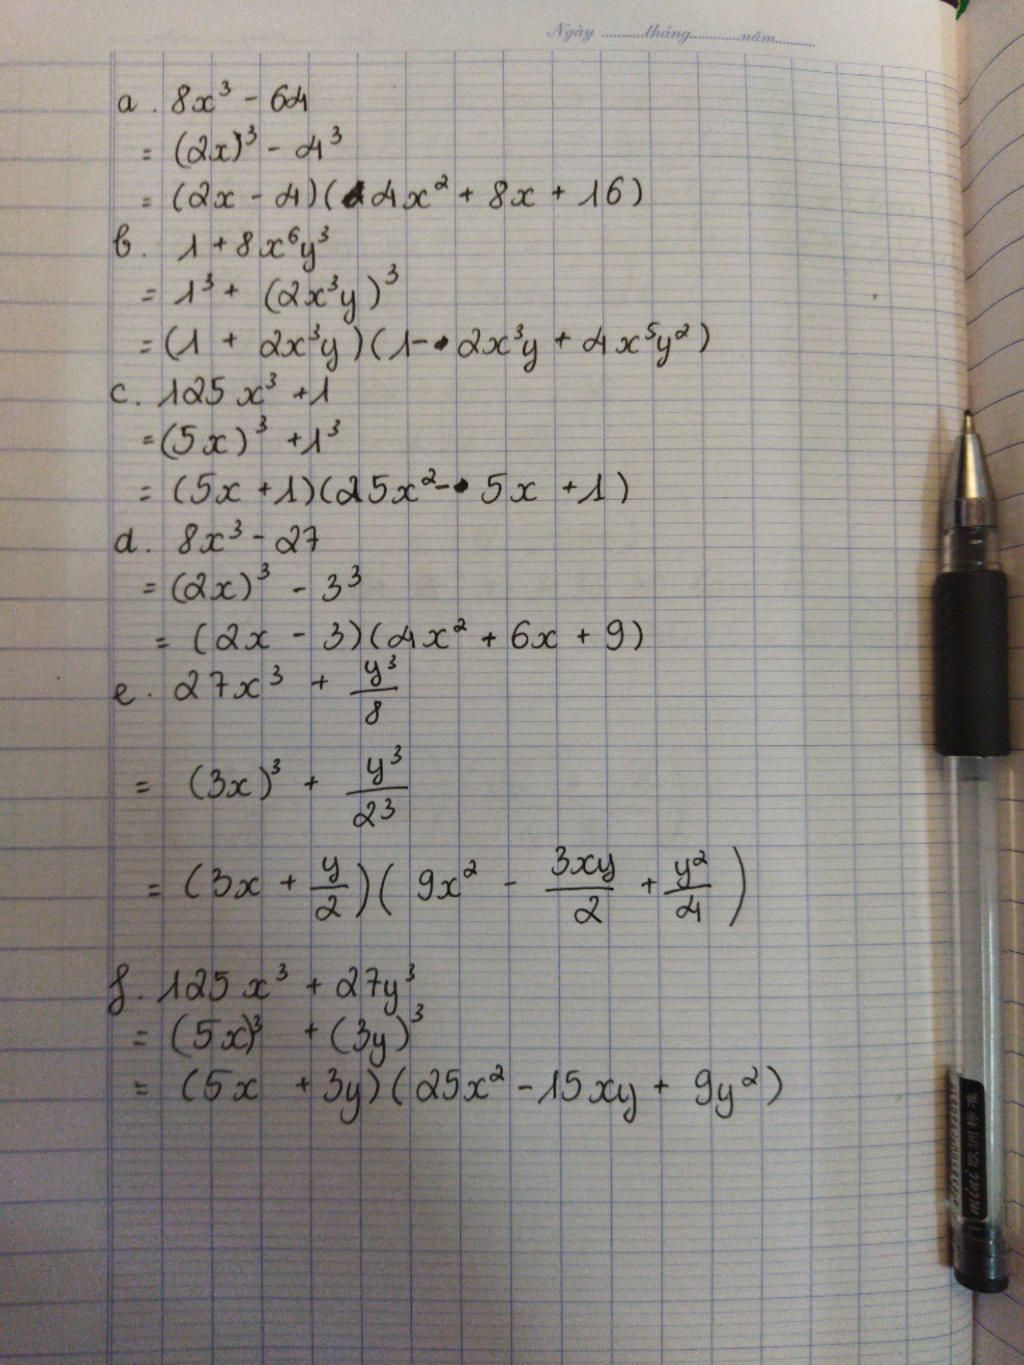 Ngày ..........tháng............năm..........
a. 8x³ - 64
= (2x)³ - 4³
= (2x - 4)(4x² + 8x + 16)
b. 1 + 8x⁶y³
= 1³ + (2x³y)³
= (1 + 2x³y)(1 - 2x³y + 4x⁵y²)
c. 125x³ + 1
= (5x)³ + 1³
= (5x + 1)(25x² - 5x + 1)
d. 8x³ - 27
= (2x)³ - 3³
= (2x - 3)(4x² + 6x + 9)
e. 27x³ + y³/8
= (3x)³ + y³/2³
= (3x + y/2)(9x² - 3xy/2 + y²/4)
f. 125x³ + 27y³
= (5x)³ + (3y)³
= (5x + 3y)(25x² - 15xy + 9y²)
mini